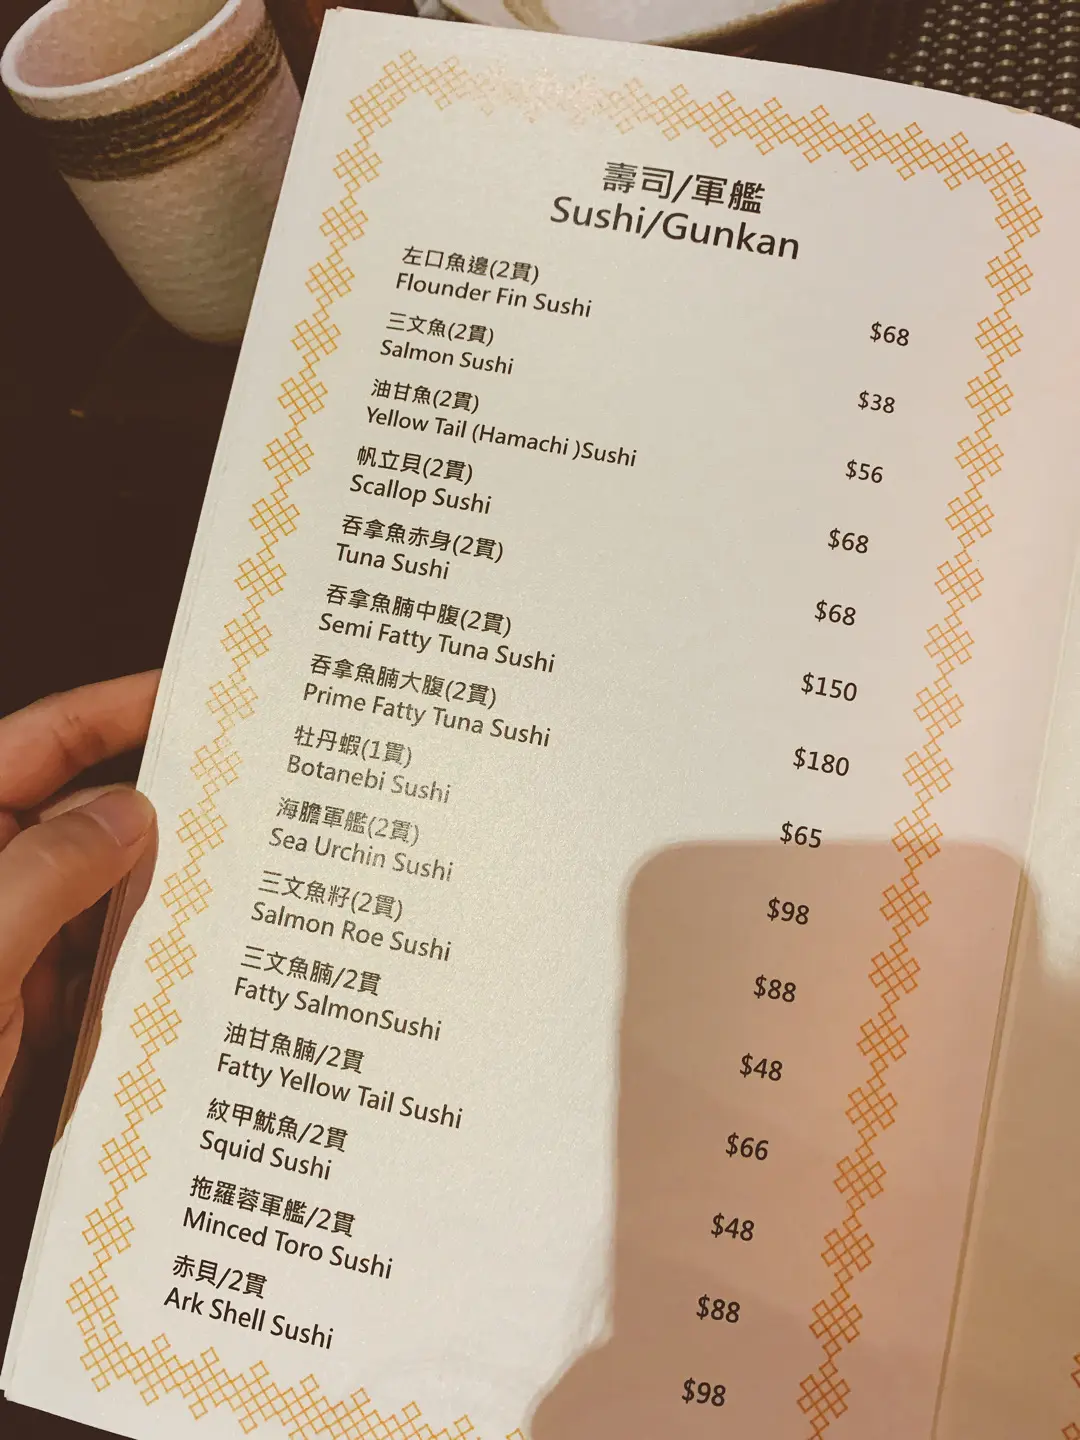 壽司/軍艦
Sushi/Gunkan
左口魚邊(2貫)
Flounder Fin Sushi
$68
三文魚(2貫)
Salmon Sushi
$38
油甘魚(2貫)
Yellow Tail (Hamachi )Sushi
$56
帆立貝(2貫)
Scallop Sushi
$68
吞拿魚赤身(2貫)
Tuna Sushi
$68
吞拿魚腩中腹(2貫)
Semi Fatty Tuna Sushi
$150
吞拿魚腩大腹(2貫)
Prime Fatty Tuna Sushi
$180
牡丹蝦(1貫)
Botanebi Sushi
$65
海膽軍艦(2貫)
Sea Urchin Sushi
$98
三文魚籽(2貫)
Salmon Roe Sushi
$88
三文魚腩/2貫
Fatty SalmonSushi
$48
油甘魚腩/2貫
Fatty Yellow Tail Sushi
$66
紋甲魷魚/2貫
Squid Sushi
$48
拖羅蓉軍艦/2貫
Minced Toro Sushi
$88
赤貝/2貫
Ark Shell Sushi
$98